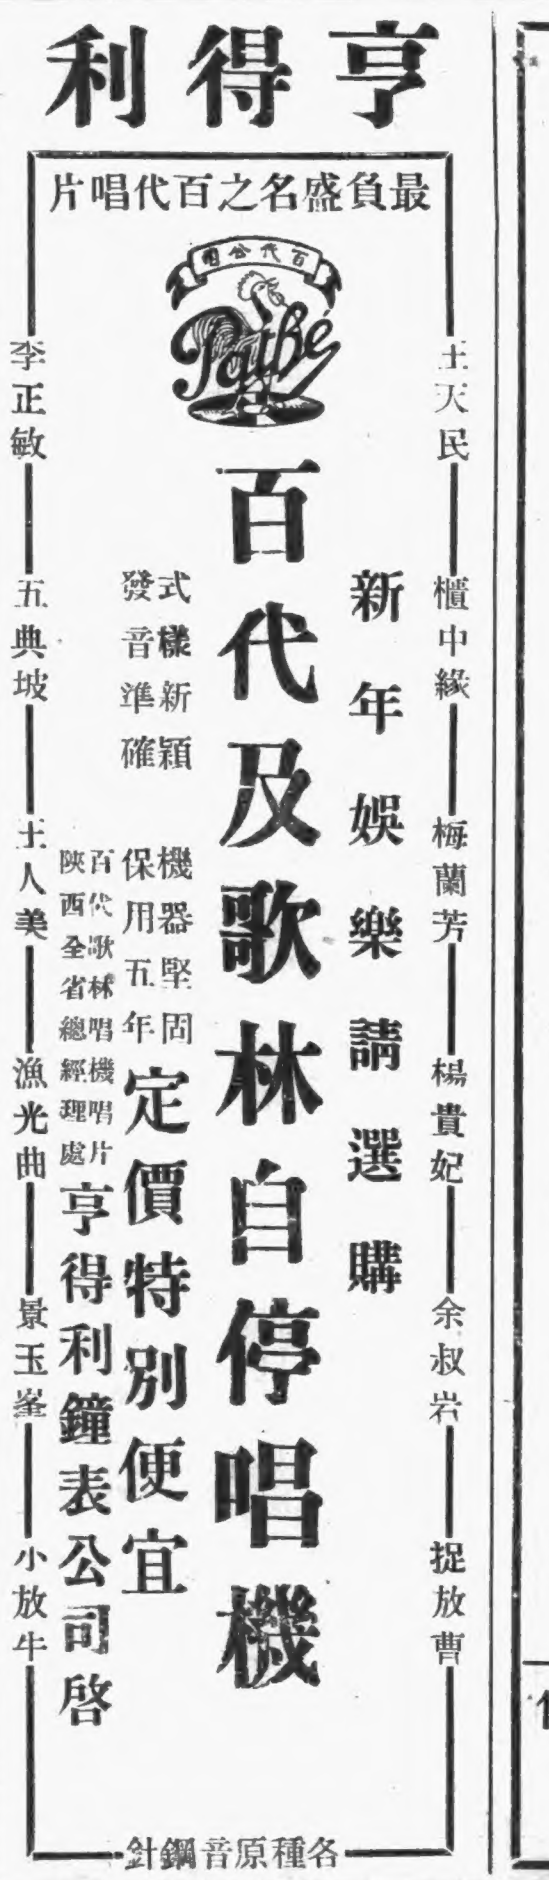 亨得利
最負盛名之百代唱片
百代公司
Pathé
王天民 櫃中緣 梅蘭芳 楊貴妃 余叔岩 捉放曹
新年娛樂請選購
百代及歌林自停唱機
式樣新穎
發音準確
機器堅固
保用五年
定價特別便宜
百代歌林唱機唱片
陜西全省總經理處
亨得利鐘表公司啓
李正敏 五典坡 王人美 漁光曲 景玉峯 小放牛
各種原音鋼針